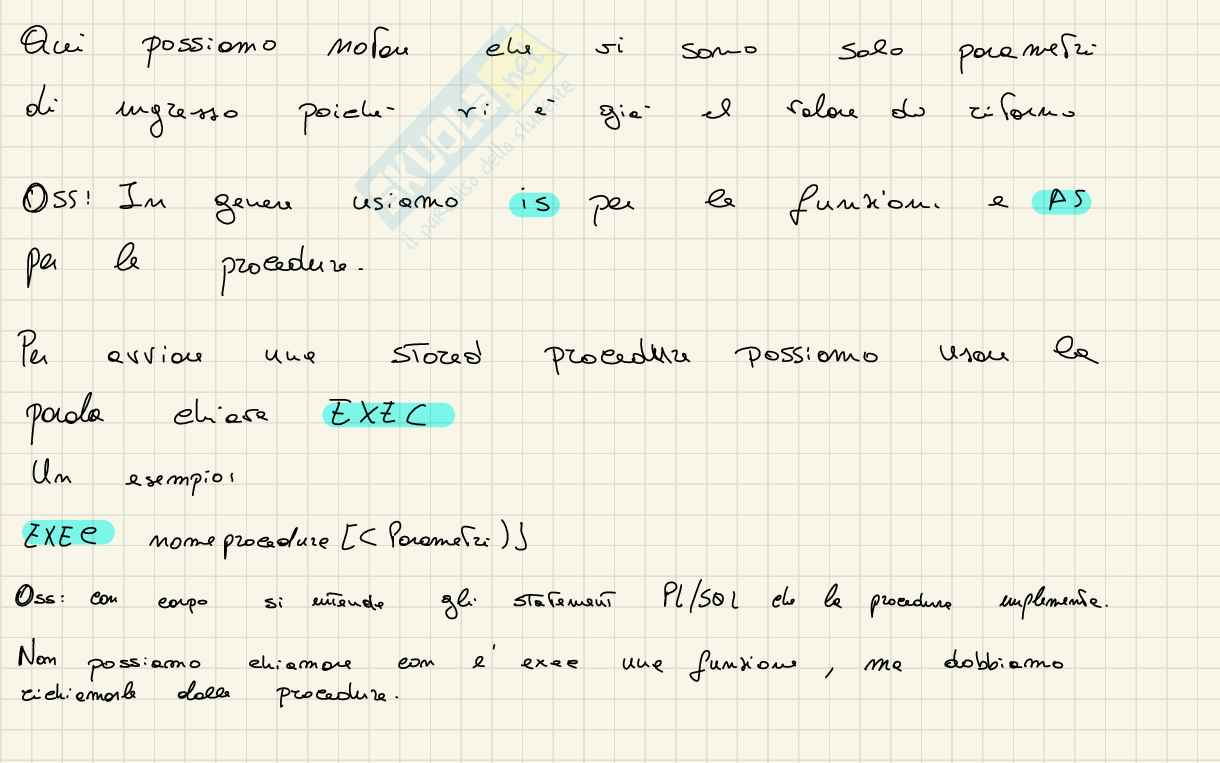 Qui possiamo notare che vi sono solo parametri
di ingresso poiche' vi e' gia' il valore di ritorno
Oss! In genere usiamo is per le funzioni e AS
per le procedure.
Per avviare una stored procedure possiamo usare la
parola chiave EXEC
Un esempio:
EXEC nome procedure [( Parametri )]
Oss: con corpo si intende gli statement PL/SQL che la procedura implementa.
Non possiamo chiamare con l'exec una funzione, ma dobbiamo
richiamarla dalle procedure.
SKUOLA.net
il paradiso dello studente